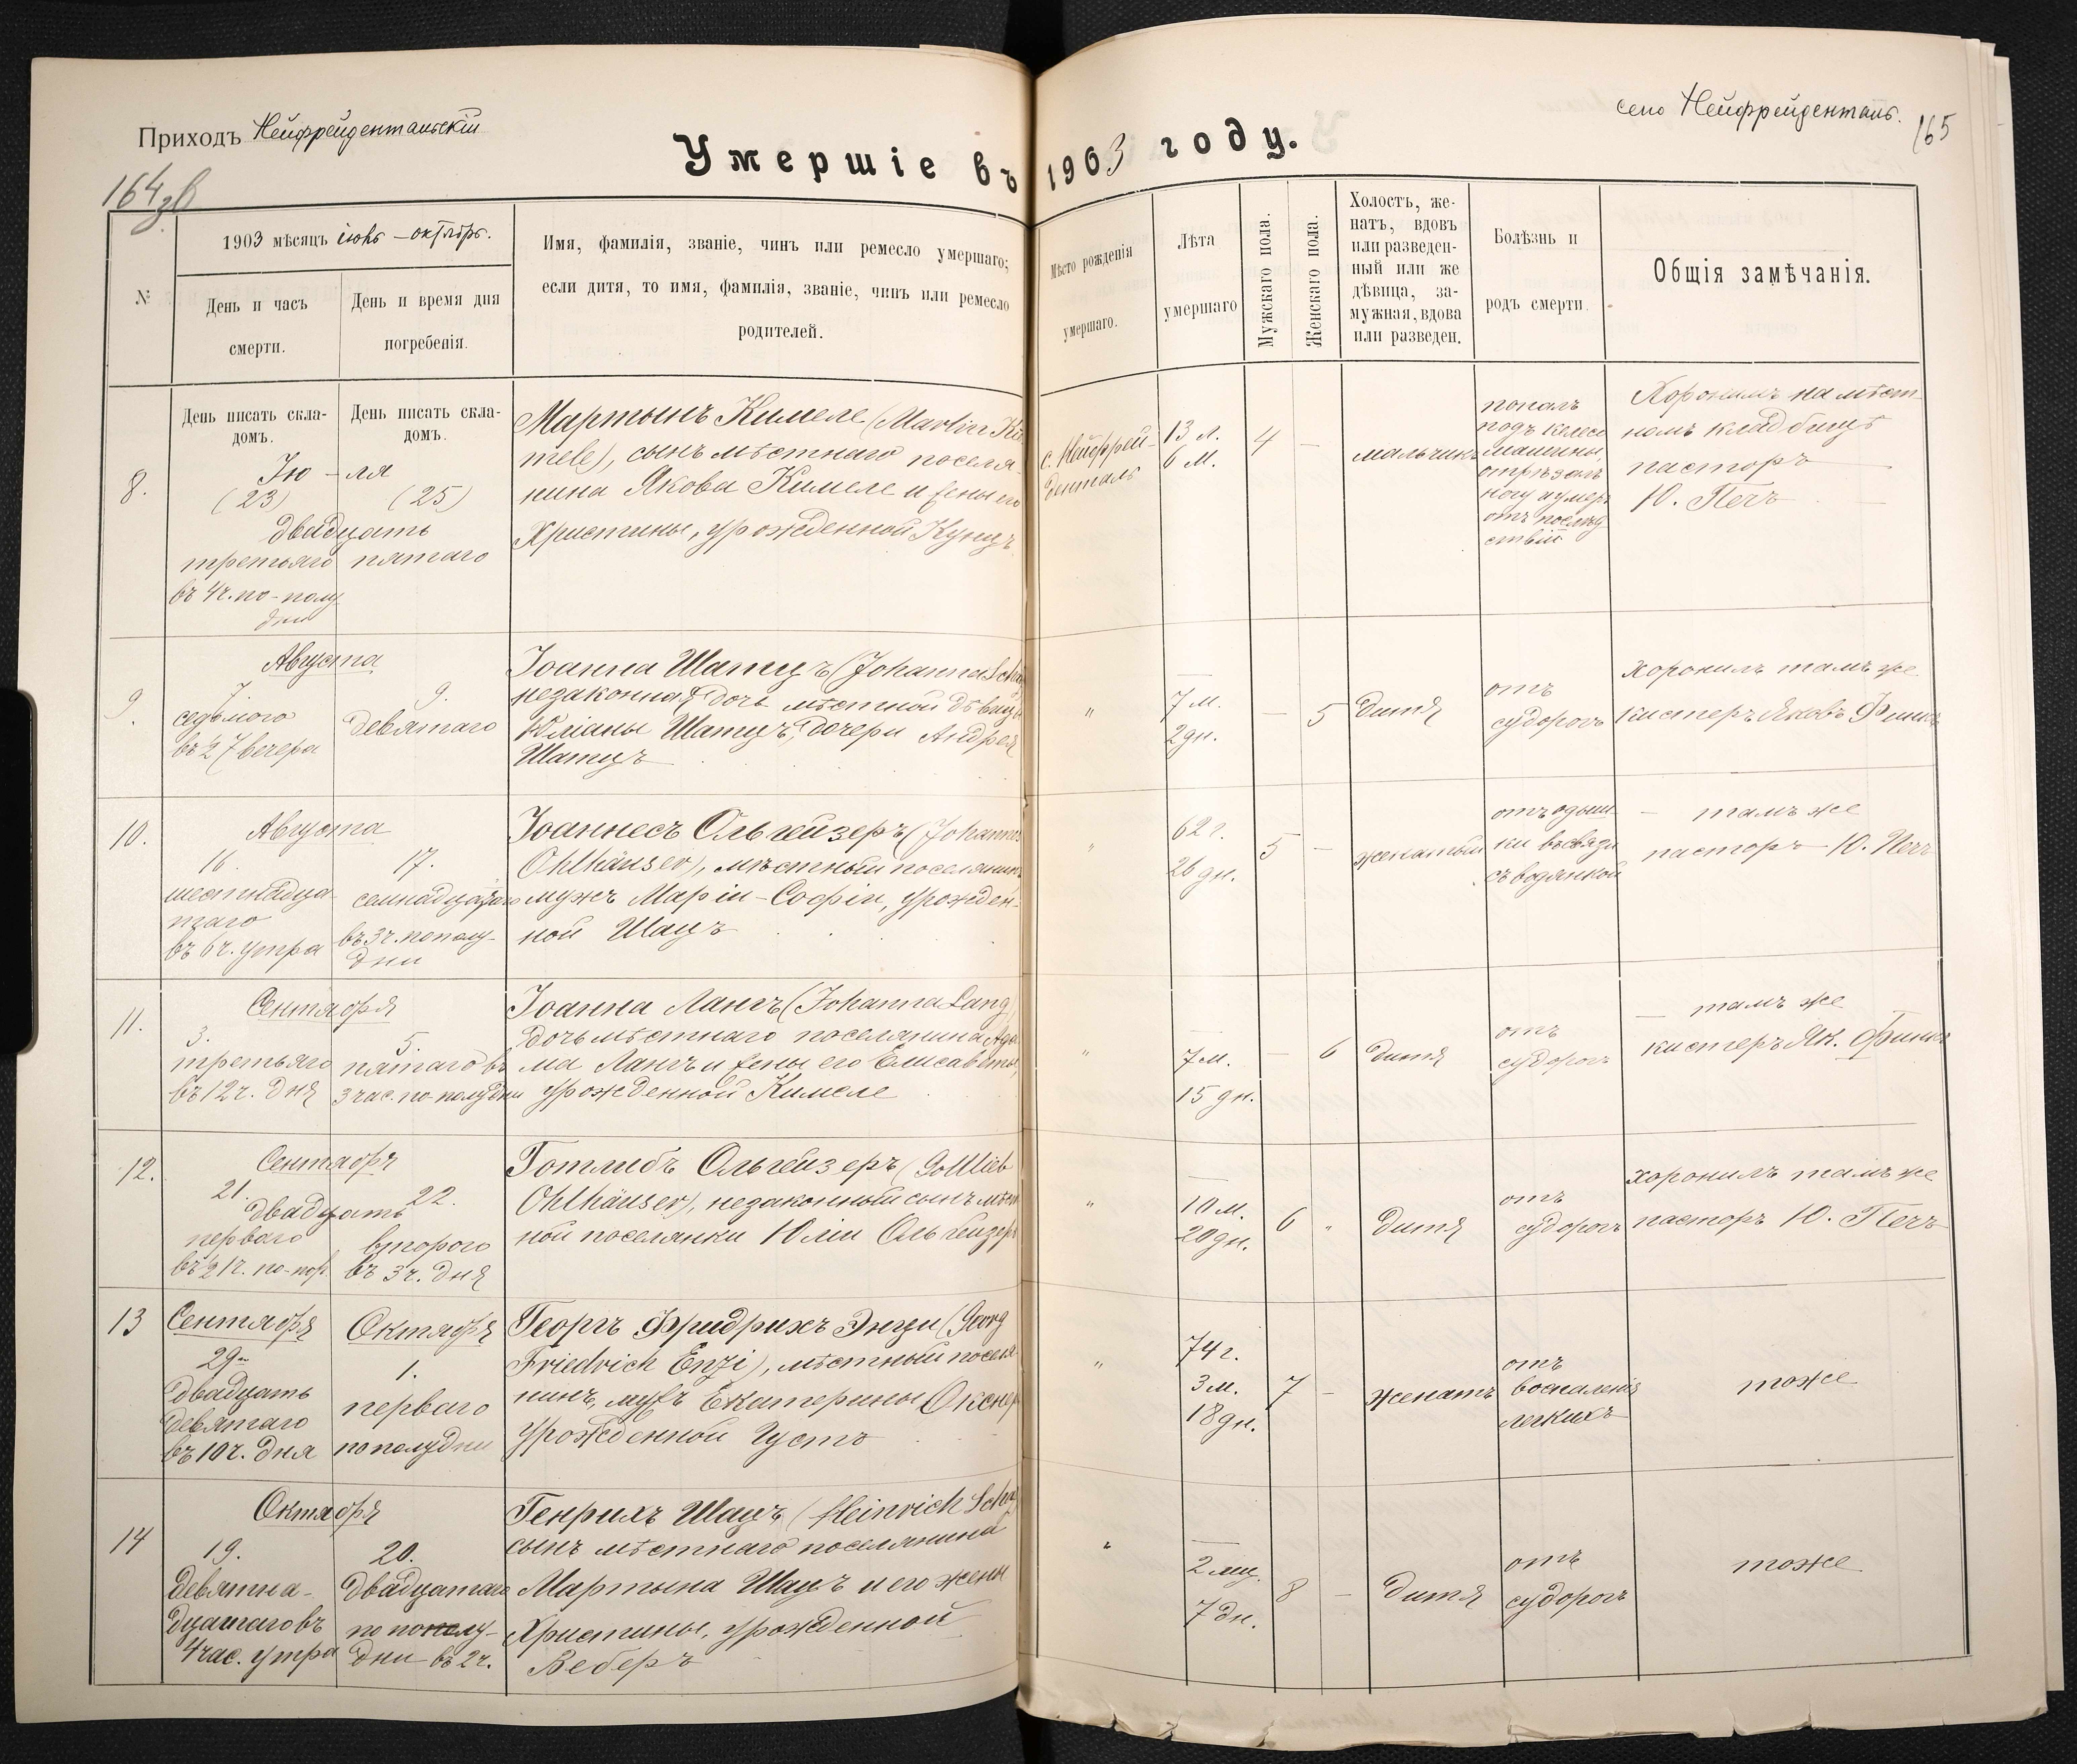 Приходъ Нейфрейдентальскій
село Нейфрейденталь.
165
164 зв
Умершіе въ 1903 году.
№
1903 мѣсяцъ іюль – октябрь.
День и часъ
смерти.
День и время дня
погребенія.
Имя, фамилія, званіе, чинъ или ремесло умершаго;
если дитя, то имя, фамилія, званіе, чинъ или ремесло
родителей.
Мѣсто рожденія
умершаго.
Лѣта
умершаго
Мужскаго пола.
Женскаго пола.
Холостъ, же-
натъ, вдовъ
или разведен-
ный или же
дѣвица, за-
мужная, вдова
или разведен.
Болѣзнь и
родъ смерти.
Общія замѣчанія.
День писать скла-
домъ.
День писать скла-
домъ.
8.
Ію – ля
(23) (25)
двадцать
третьяго пятаго
въ 4 ч. по-полу
дни
Мартынъ Кимеле (Martin Ki
mele), сынъ мѣстнаго поселя
нина Якова Кимеле и жены его
Христины, урожденной Кунцъ
с. Нейфрей-
денталь
13 л.
6 м.
4
–
мальчикъ
попалъ
подъ колесо
машины,
отрѣзалъ
ногу и умеръ
отъ послѣд
ствій
Хоронилъ на мѣст
номъ кладбищѣ
пасторъ
Ю. Печъ
9.
Августа
7. 9.
седьмого
въ ½ 7 вечера
девятаго
Іоанна Шатцъ (Johanna Scha
незаконная дочь мѣстной дѣвицы
Юліаны Шатцъ, дочери Андрея
Шатцъ
"
7 м.
2 дн.
–
5
дитя
отъ
судорогъ
хоронилъ тамъ же
кистеръ Яковъ Финкъ
10.
Августа
16. 17.
шестнадца-
таго
въ 6 ч. утра
семнадцатаго
въ 3 ч. пополу-
дни
Іоаннесъ Ольгейзеръ (Johannes
Ohlhäuser), мѣстный поселянинъ
мужъ Маріи-Софіи, урожден-
ной Шацъ
"
62 г.
26 дн.
5
–
женатый
отъ одыш-
ки въ связи
съ водянкой
– тамъ же
пасторъ Ю. Печъ
11.
Сентября
3. 5.
третьяго
въ 12 ч. дня
пятаго въ
3 час. по-полудни
Іоанна Лангъ (Johanna Lang
дочь мѣстнаго поселянина Ада
ма Лангъ и жены его Елисаветы,
урожденной Кимеле
"
7 м.
15 дн.
–
6
дитя
отъ
судорогъ
– тамъ же
кистеръ Як. Финкъ
12.
Сентября
21. 22.
двадцать
перваго второго
въ ½ 1 ч. по-пол. въ 3 ч. дня
Готлибъ Ольгейзеръ (Gottlieb
Ohlhäuser), незаконный сынъ мѣст
ной поселянки Юліи Ольгейзеръ
"
10 м.
20 дн.
6
"
дитя
отъ
судорогъ
хоронилъ тамъ же
пасторъ Ю. Печъ
13
Сентября Октября
29. 1.
двадцать
девятаго
въ 10 ч. дня
перваго
пополудни
Георгъ Фридрихъ Энзи (Georg
Friedrich Enzi), мѣстный поселя
нинъ, мужъ Екатерины Окснеръ
урожденной Густъ
"
74 г.
3 м.
18 дн.
7
–
женатъ
отъ
воспаленія
легкихъ
тоже
14
Октября
19. 20.
девятна-
дцатаго въ
4 час. утра
двадцатаго
по пополу-
дни въ 2 ч.
Генрихъ Шацъ (Heinrich Scha
сынъ мѣстнаго поселянина
Мартына Шацъ и его жены
Христины, урожденной
Веберъ
"
2 мц.
7 дн.
8
–
дитя
отъ
судорогъ
тоже